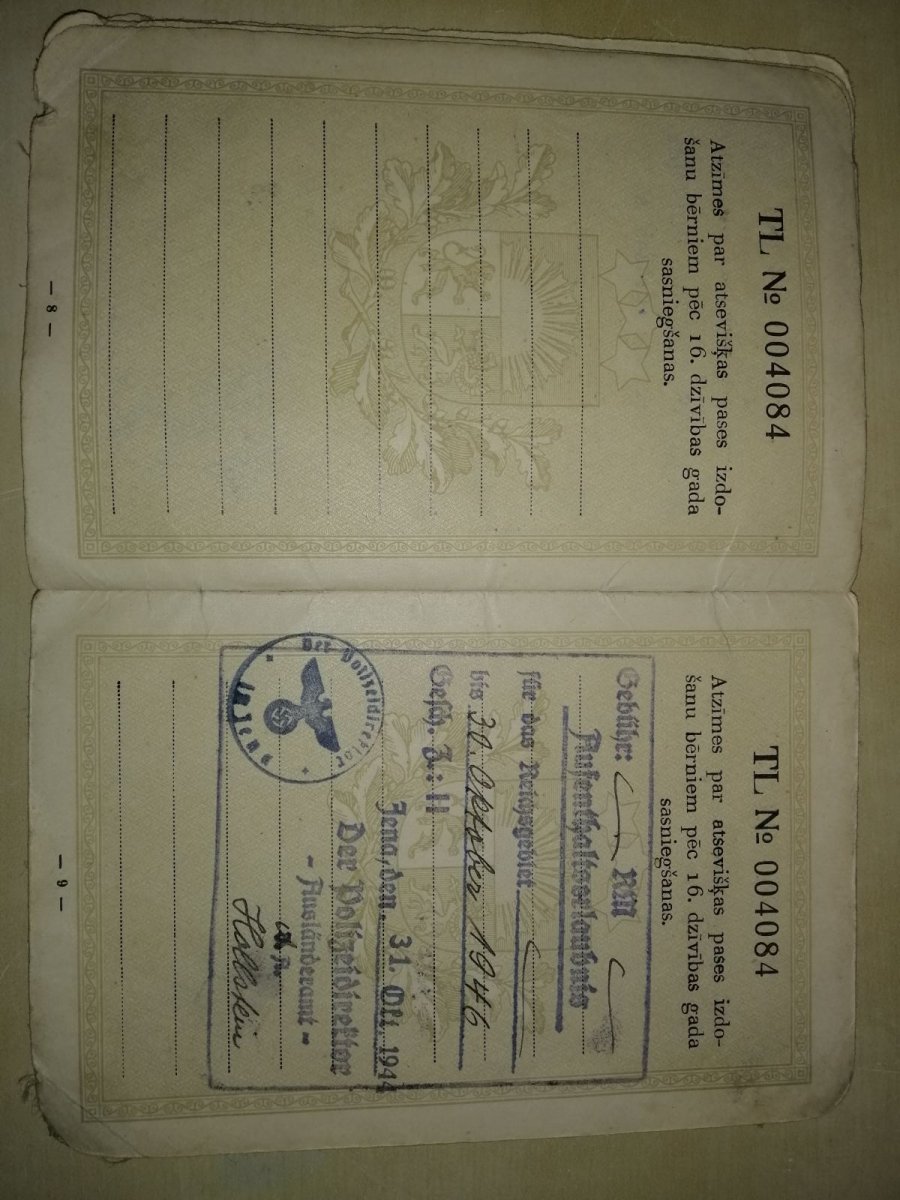 TL № 004084
Atzīmes par atsevišķas pases izdo-
šanu bērniem pēc 16. dzīvības gada
sasniegšanas.
— 8 —
TL № 004084
Atzīmes par atsevišķas pases izdo-
šanu bērniem pēc 16. dzīvības gada
sasniegšanas.
Gebühr: RM
Aufenthaltserlaubnis
für das Reichsgebiet
bis 30. Oktober 1946
Gesch. Z.: II
Jena, den 31. Okt. 1944
Der Polizeidirektor
- Ausländeramt -
Der Polizeidirektor
in Jena
— 9 —